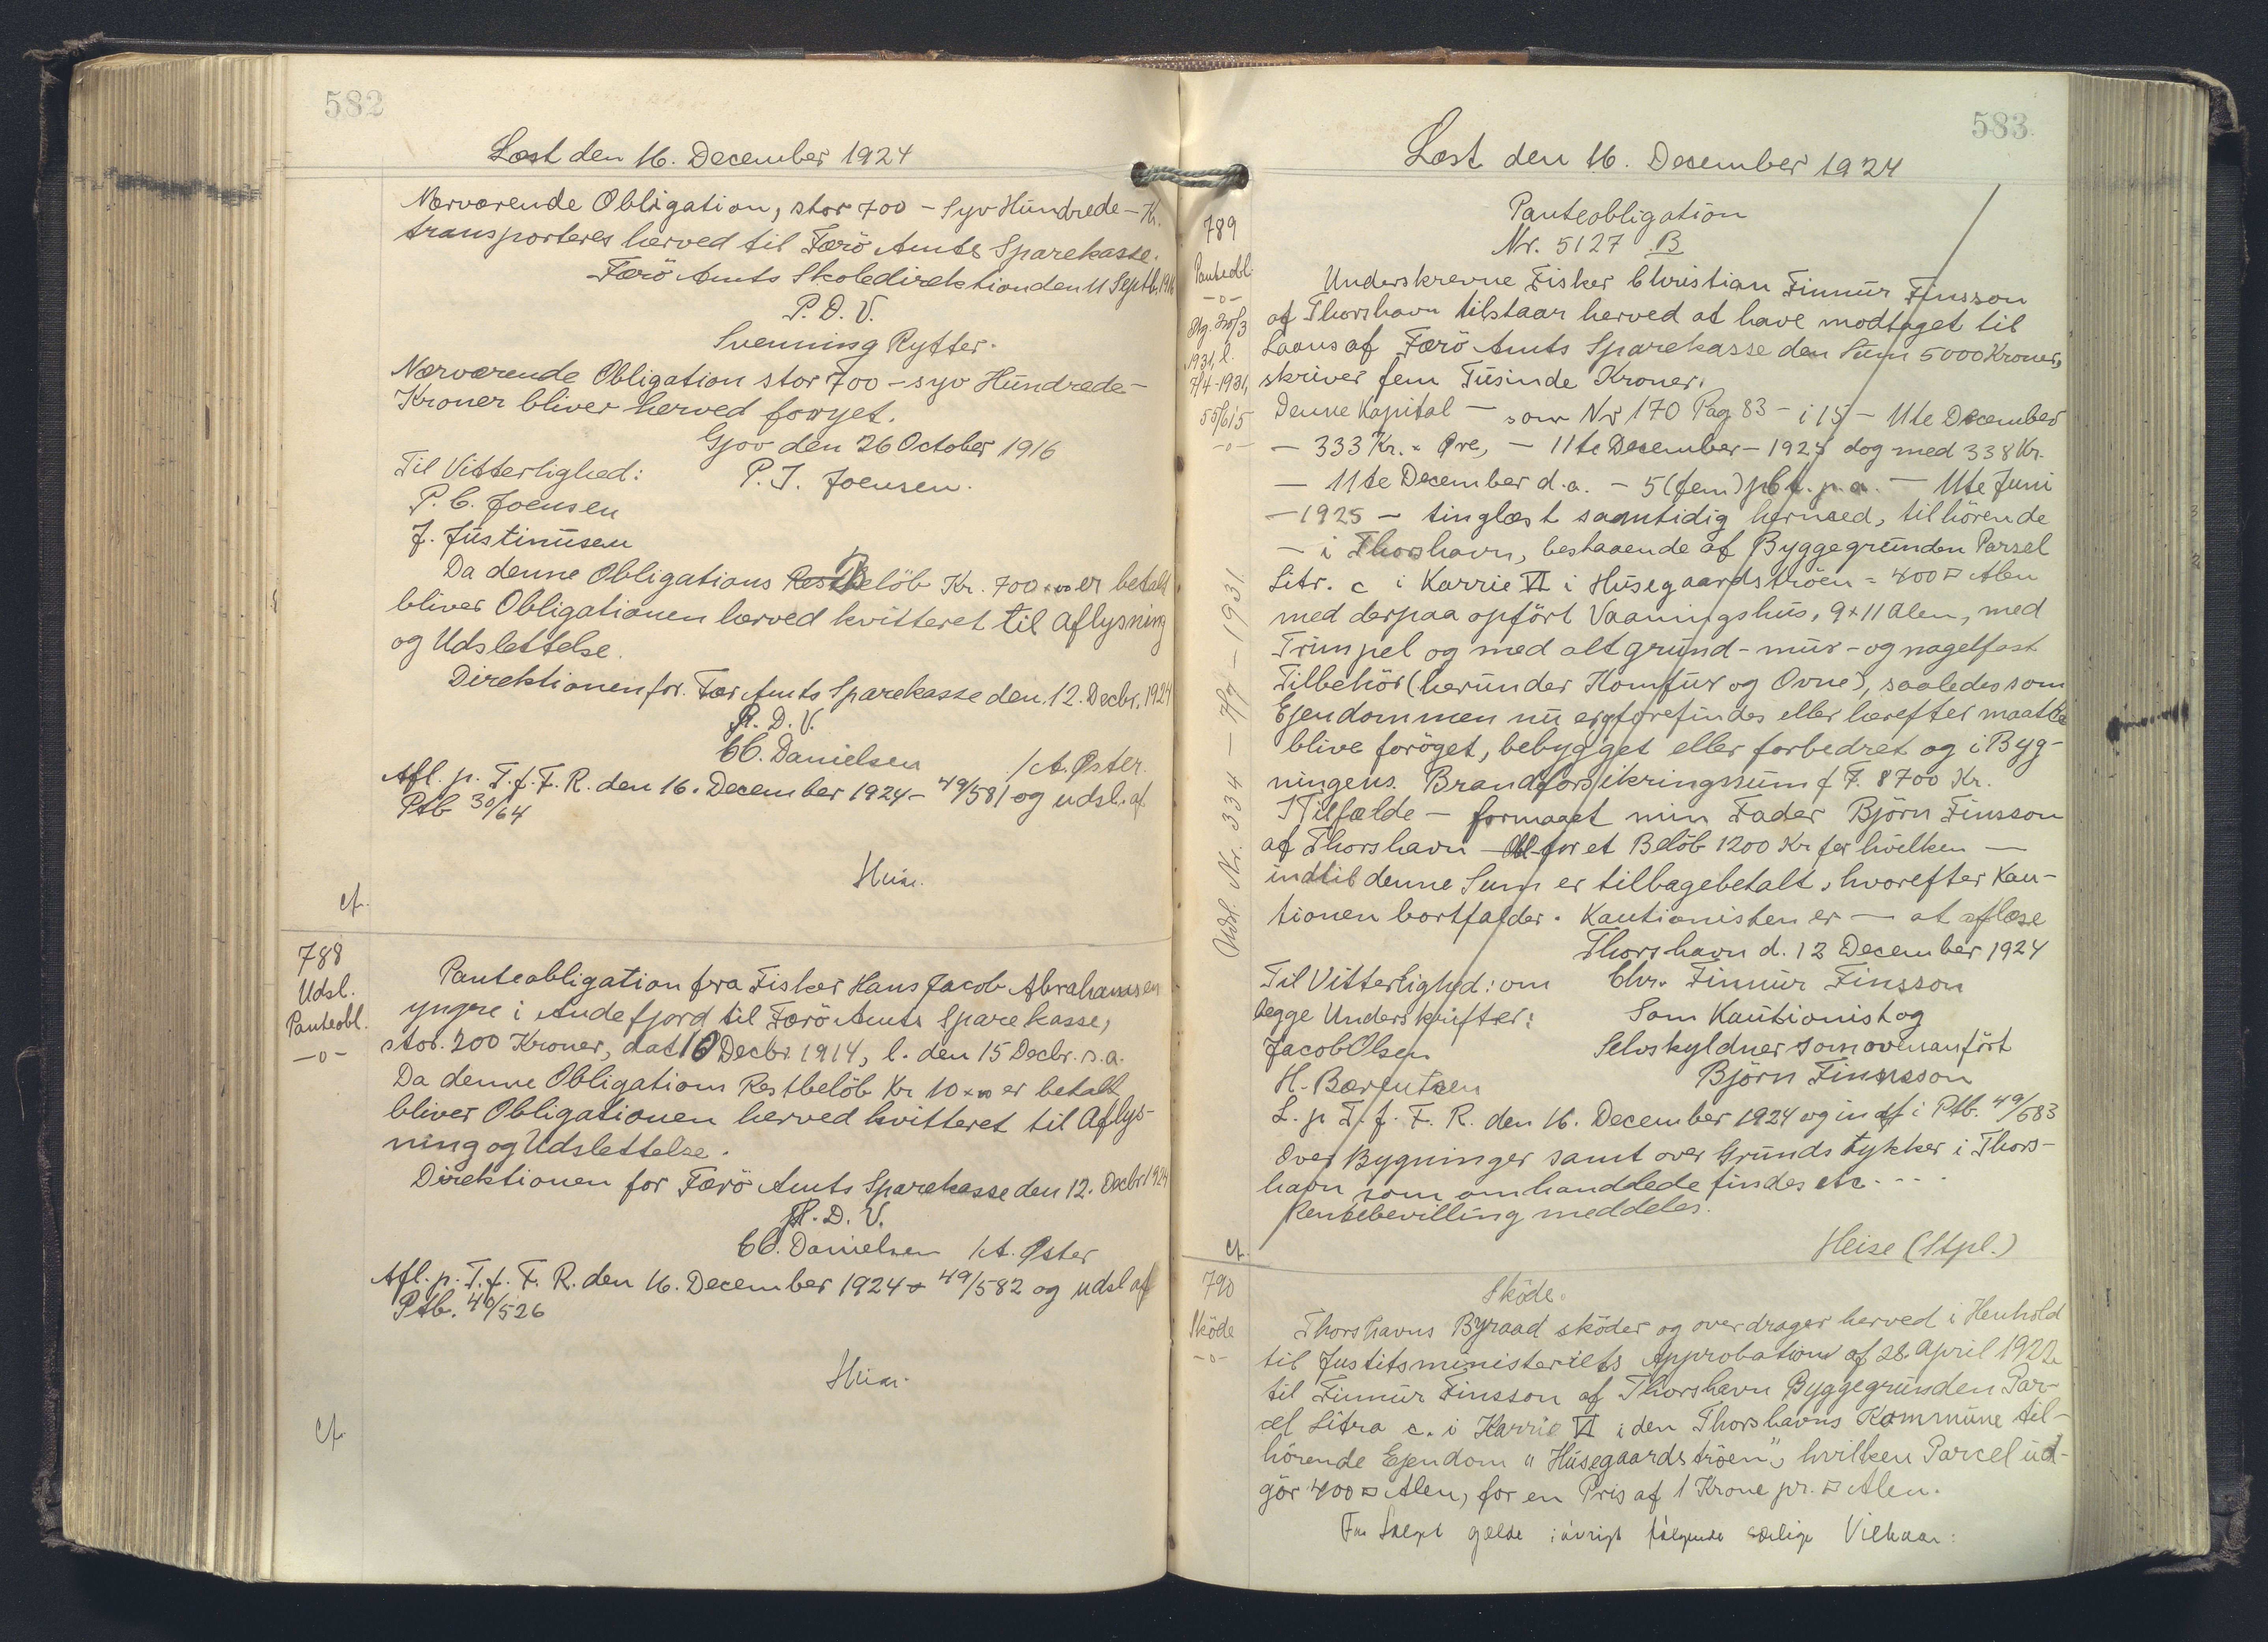 582
Læst den 16. December 1924
Nærværende Obligation, stor 700 – Syv Hundrede – Kr.
transporteres herved til Færö Amts Sparekasse.
Færö Amts Skoledirektion den 11 Septb. 1916
P. D. V.
Svenning Rytter.
Nærværende Obligation stor 700 – syv Hundrede –
Kroner bliver herved fornyet.
Gjov den 26 October 1916
Til Vitterlighed: P. J. Joensen.
P. C. Joensen
J. Justinussen
Da denne Obligations Restbelöb Kr. 700 × 00 er betalt
bliver Obligationen herved kvitteret til Aflysning
og Udslettelse.
Direktionen for Fær Amts Sparekasse den 12. Decbr. 1924
P. D. V.
CC. Danielsen /A. Øster.
Afl. p. T. f. F. R. den 16. December 1924 – 49/581 og udsl. af
Ptb 30/64
Heise.
cf.
788
Udsl.
Panteobl.
–o–
Panteobligation fra Fisker Hans Jacob Abrahamsen
yngre i Andefjord til Færö Amts Sparekasse,
stor 200 Kroner, dat 10 Decbr. 1914, l. den 15 Decbr. s. a.
Da denne Obligations Restbelöb Kr 10 × 00 er betalt
bliver Obligationen herved kvitteret til Aflys-
ning og Udslettelse.
Direktionen for Færö Amts Sparekasse den 12. Decbr 1924
P. D. V.
CC. Danielsen /A. Øster
Afl. p. T. f. F. R. den 16. December 1924 49/582 og udsl af
Ptb. 40/526
Heise.
cf.
583
Læst den 16. December 1924
789
Panteobl.
–o–
1931, l.
7/4-1931,
55/615
–o–
Udsl. Nr. 334 – 7/7 – 1931
Panteobligation
Nr. 5127 B
Underskrevne Fisker Christian Finnur Finsson
af Thorshavn tilstaar herved at have modtaget til
Laans af Færö Amts Sparekasse den Sum 5000 Kroner,
skriver fem Tusinde Kroner.
Denne Kapital – som Nr 170 Pag 83 – i 15 – 11te December
– 333 Kr. × Øre, – 11te December – 1925 dog med 338 Kr.
– 11te December d. a. – 5 (fem) pCt. p. a. – 11te Juni
– 1925 – tinglæst samtidig hermed, tilhörende
– i Thorshavn, bestaaende af Byggegrunden Parsel
Litr. c i Karrie VI i Husegaardströen = 400 □ Alen
med derpaa opfört Vaaningshus, 9 × 11 Alen, med
Trimpel og med alt grund- mur- og nagelfast
Tilbehör (herunder Komfur og Ovne), saaledes som
Ejendommen nu er, forefindes eller herefter maatte
blive foröget, bebygget eller forbedret og i Byg-
ningens Brandforsikringssum f. T. 8700 Kr.
I Tilfælde – formaaet min Fader Björn Finsson
af Thorshavn – for et Belöb 1200 Kr for hvilken –
indtil denne Sum er tilbagebetalt, hvorefter Kau-
tionen bortfalder. Kautionisten er – at aflæse
Thorshavn d. 12 December 1924
Til Vitterlighed: om Chr. Finnur Finsson
begge Underskrifter: Som Kautionist og
Jacob Olsen Selvskyldner som ovenanfört
H. Bærentsen Björn Finnsson
L. p T. f. F. R. den 16. December 1924 og indf i Ptb. 49/583
Over Bygninger samt over Grundstykker i Thors-
havn som omhandlede findes etc. . . . .
Rentebevilling meddeles.
cf. Heise (Stpl.)
790
Sköde
–o–
Sköde.
Thorshavns Byraad sköder og overdrager herved i Henhold
til Justitsministeriets Approbation af 28. April 1922
til Finnur Finsson af Thorshavn Byggegrunden Par-
cel Litra c. i Karrie VI i den Thorshavns Kommune til-
hörende Ejendom "Husegaardströen", hvilken Parcel ud-
gör 400 □ Alen, for en Pris af 1 Krone pr. □ Alen.
For Salget gælde iövrigt fölgende særlige Vilkaar: